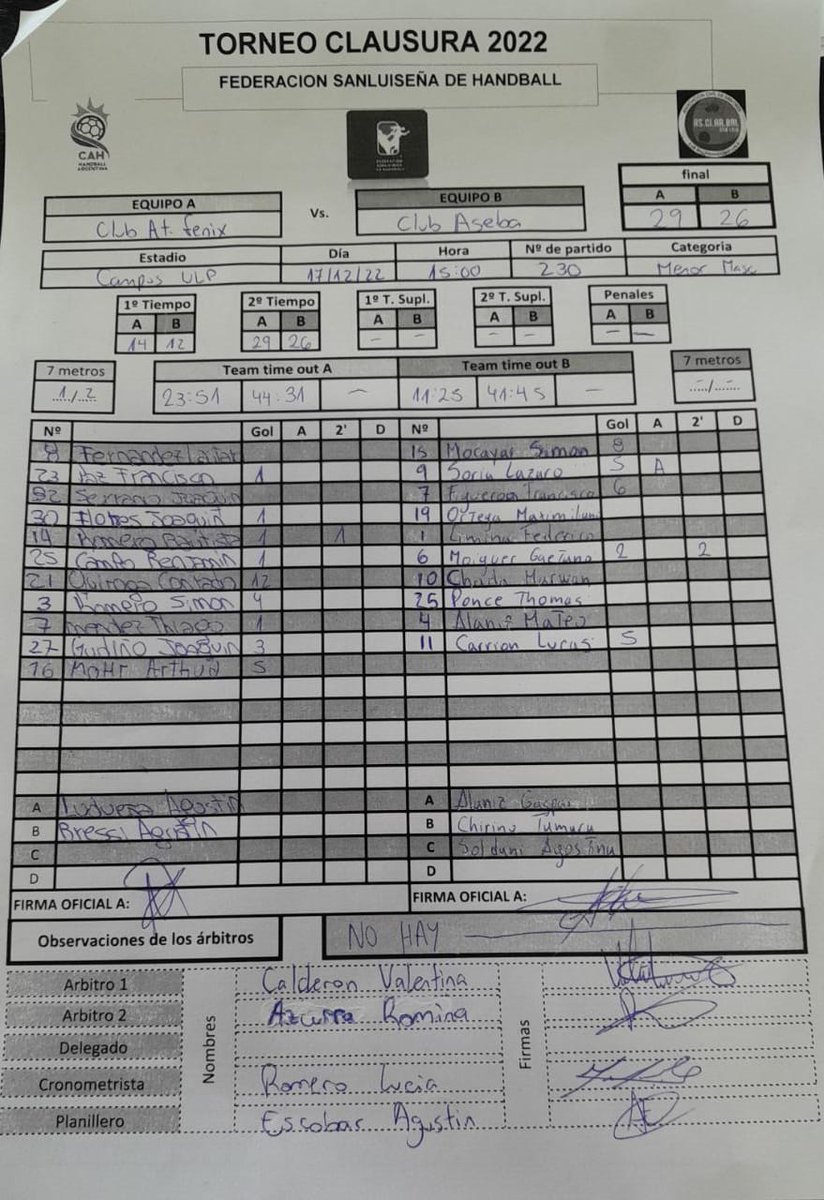 TORNEO CLAUSURA 2022
FEDERACION SANLUISEÑA DE HANDBALL
CAH
HANDBALL
ARGENTINA
AS.CI.AR.BAL
final
EQUIPO A Vs. EQUIPO B A B
Club At. fenix Club Aseba 29 26
Estadio Día Hora Nº de partido Categoria
Campus ULP 17/12/22 15:00 230 Menor Masc
1º Tiempo 2º Tiempo 1º T. Supl. 2º T. Supl. Penales
A B A B A B A B A B
14 12 29 26 - - - - - -
7 metros Team time out A Team time out B 7 metros
1/2 23:51 44:31 - 11:25 41:45 - .../...
Nº Gol A 2' D Nº Gol A 2' D
8 Fernandez 15 Mocayar Simon 8
23 Paz Francisco 1 9 Soria Lazaro 5 A
92 Serrano Joaquin 7 Figueroa Francisco 6
30 Flores Joaquin 1 19 Ortega Maximiliano
14 Romero Bautista 1 1 1 Limina Federico
25 Canto Benjamin 1 6 Moiguer Gaetano 2 2
21 Quiroga Contado 12 10 Chada Marwan
3 Romero Simon 4 25 Ponce Thomas
7 Mendez Thiago 1 4 Alaniz Mateo
27 Gudiño Joaquin 3 11 Carrion Lucas 5
16 Mohr Arthur 5
A Agustin A Alaniz Gaspar
B Bressi Agustin B Chirino Tamara
C C Soldani Agostina
D D
FIRMA OFICIAL A: FIRMA OFICIAL A:
Observaciones de los árbitros NO HAY
Arbitro 1 Calderon Valentina
Arbitro 2 Azcurra Romina
Delegado
Nombres Firmas
Cronometrista Romero Lucia
Planillero Escobar Agustin